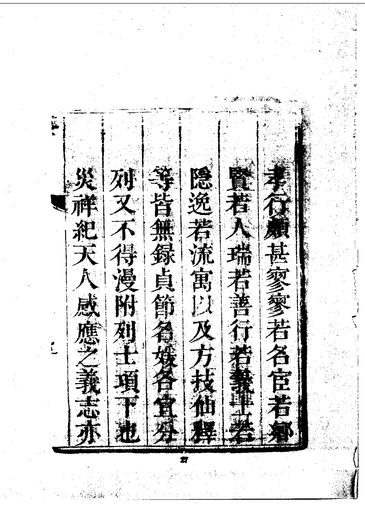 孝行顧甚寥寥若名宦若鄉
賢若人瑞若善行若義士若
隱逸若流寓以及方技仙釋
等皆無録貞節名媛各宜分
列又不得漫附列士項下也
災祥紀天人感應之義志亦
27